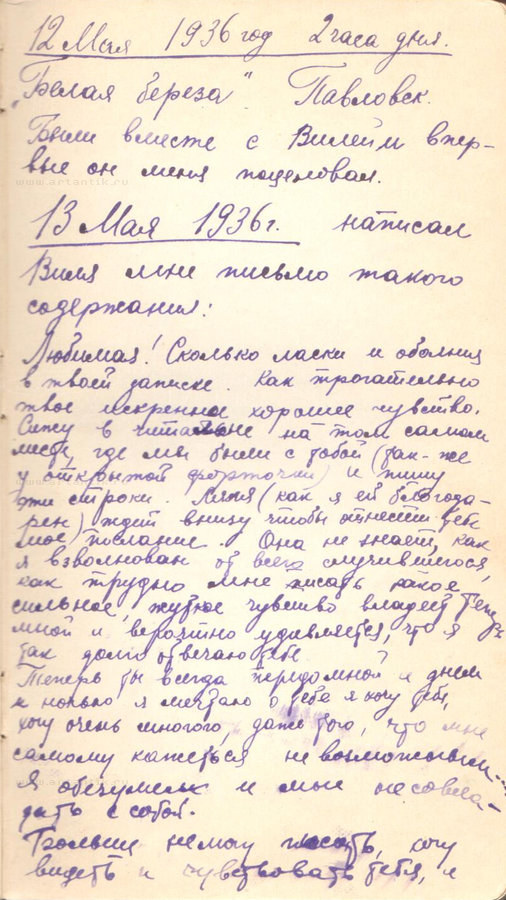 12 Мая 1936 год 2 часа дня.
„Белая береза" Павловск.
Были вместе с Вилейм впер-
вые он меня поцеловал.
www.artantik.ru
13 Мая 1936 г. написал
Виля мне письмо такого
содержания:
Любимая! Сколько ласки и обояния
в твоей записке. Как трогательно
твое искренне хорошее чувство.
Сижу в читальне на том самом
месте, где мы были с тобой (так-же
у открытой форточки) и пишу
эти строки. (как я ей благода-
рен) ждет внизу чтобы отнести тебе
мое послание. Она не знает, как
я взволнован от всего случившегося,
как трудно мне писать какое
сильное, жуткое чувство владеет теперь
мной и вероятно удивляется, что я
так долго отвечаю тебе.
Теперь ты всегда передомной и днем
и ночью я мечтаю о тебе я хочу тебя,
хочу очень многого даже того, что мне
самому кажеться невозможным
Я обезумел и мне не совла-
дать с собой.
Больше немогу писать, хочу
видеть и чувствовать тебя, и